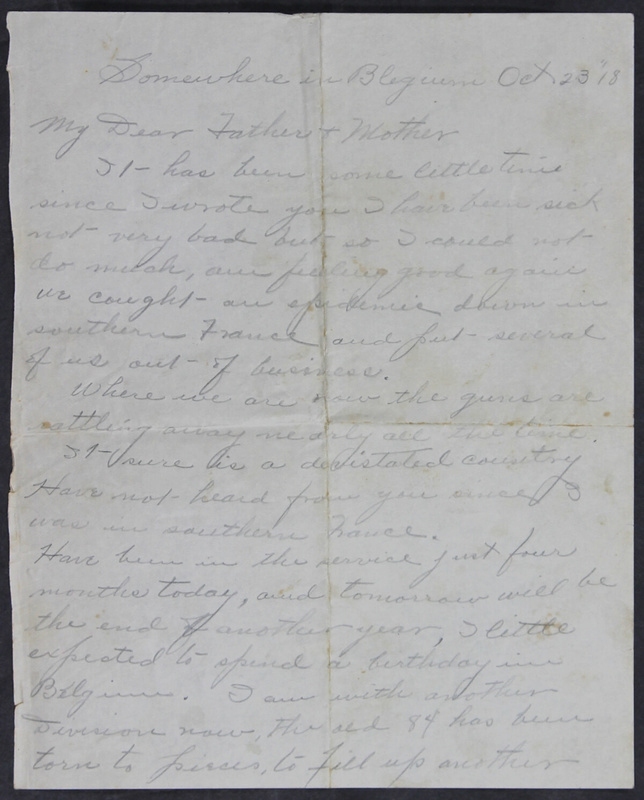 Somewhere in Blegium Oct 23 '18
My Dear Father & Mother
It has been some little time
since I wrote you I have been sick
not very bad but so I could not
do much, am feeling good again
we caught an epidemic down in
southern France and put several
of us out of business.
Where we are now the guns are
rattling away nearly all the time.
It sure is a devistated country
Have not heard from you since I
was in southern France.
Have been in the service just four
months today, and tomorrow will be
the end of another year, I little
expected to spend a birthday in
Belgium. I am with another
Division now, the old 84 has been
torn to pieces, to fill up another